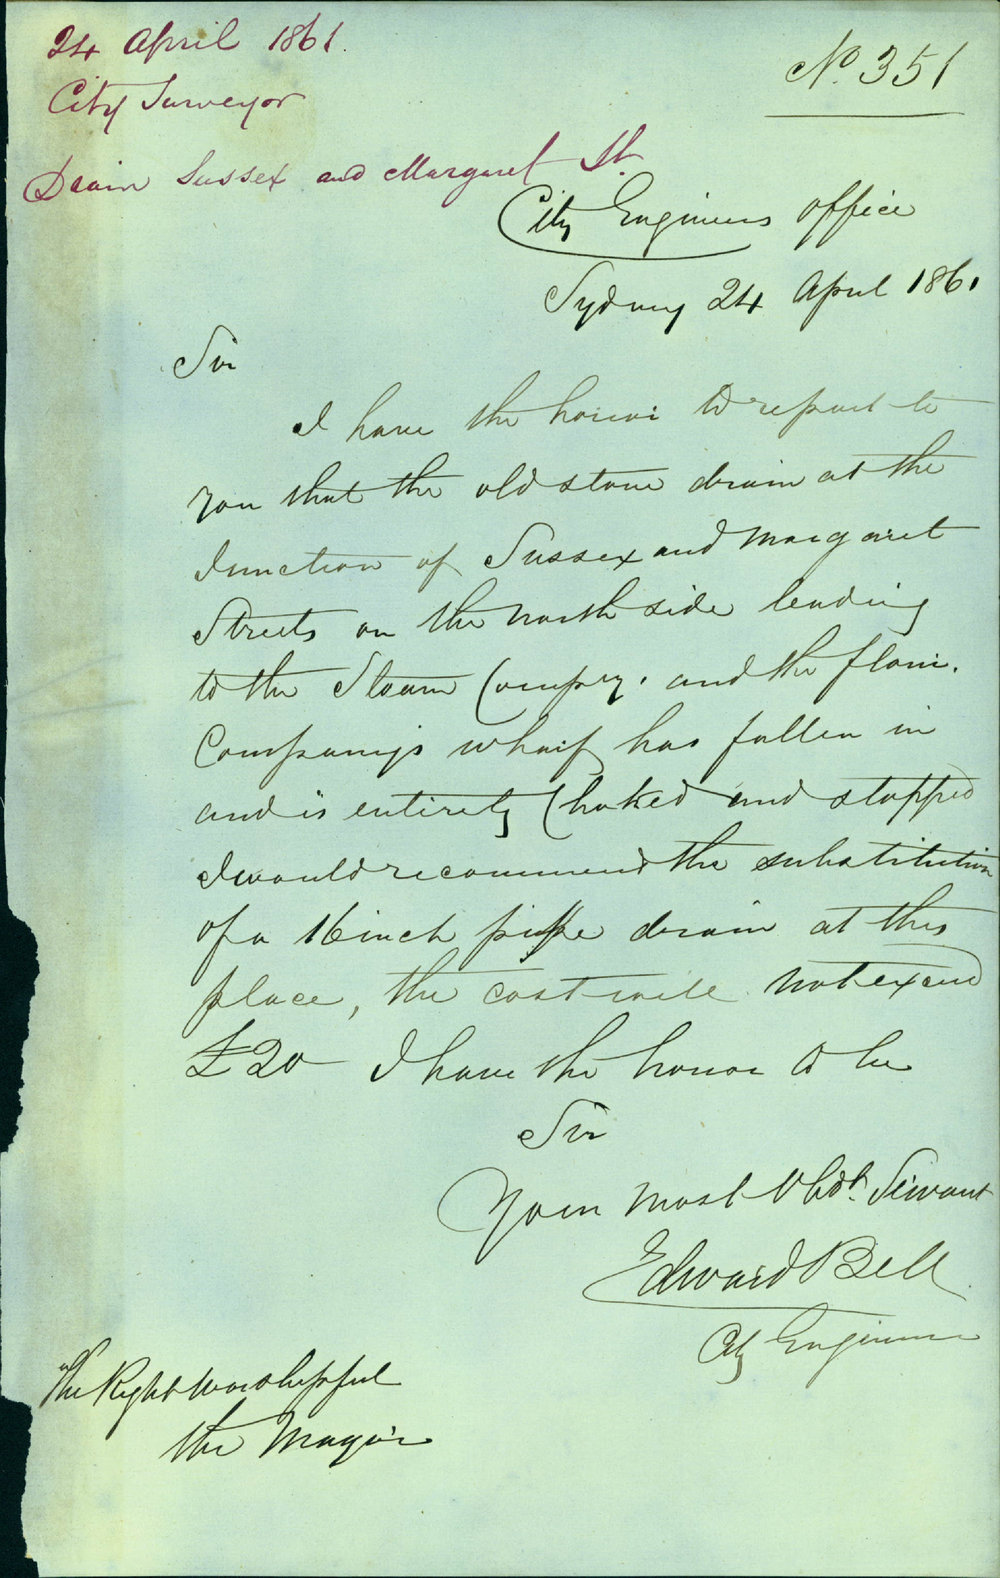 24 April 1861.
City Surveyor
Drain Sussex and Margaret St.
No. 351
City Engineers office
Sydney 24 April 1861
Sir
I have the honor to report to
you that the old stone drain at the
Junction of Sussex and Margaret
Streets on the north side leading
to the Steam Compy. and the flour.
Company's wharf has fallen in
and is entirely Choked and stopped
I would recommend the substitution
of a 16 inch pipe drain at this
place, the cost will not exceed
£20 I have the honor to be
Sir
Your most Obdt. Servant
Edward Bell
City Engineer
The Right Worshipful
the Mayor